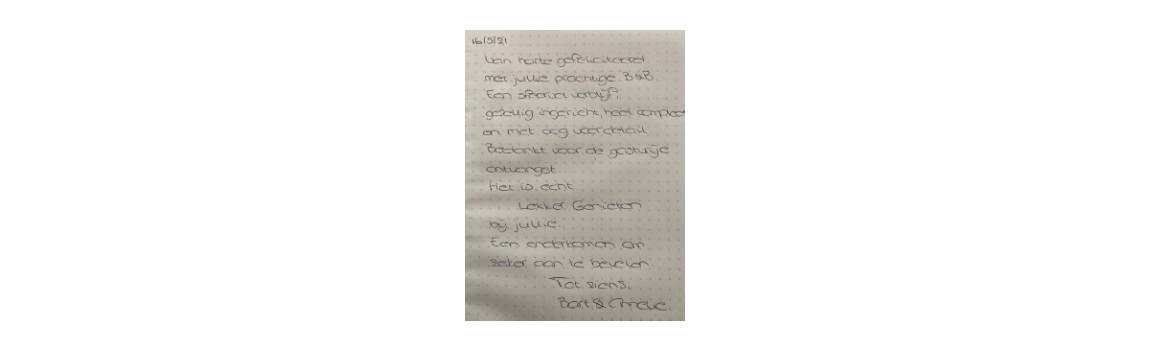 16/5/21
Van harte gefeliciteerd
met jullie prachtige B&B.
Een sfeervol verblijf,
gezellig ingericht, heel compleet
en met oog voor detail.
Bedankt voor de gastvrije
ontvangst.
Het is echt
Lekker Genieten
bij jullie.
Een om
zeker aan te bevelen
Tot ziens.
Bart &